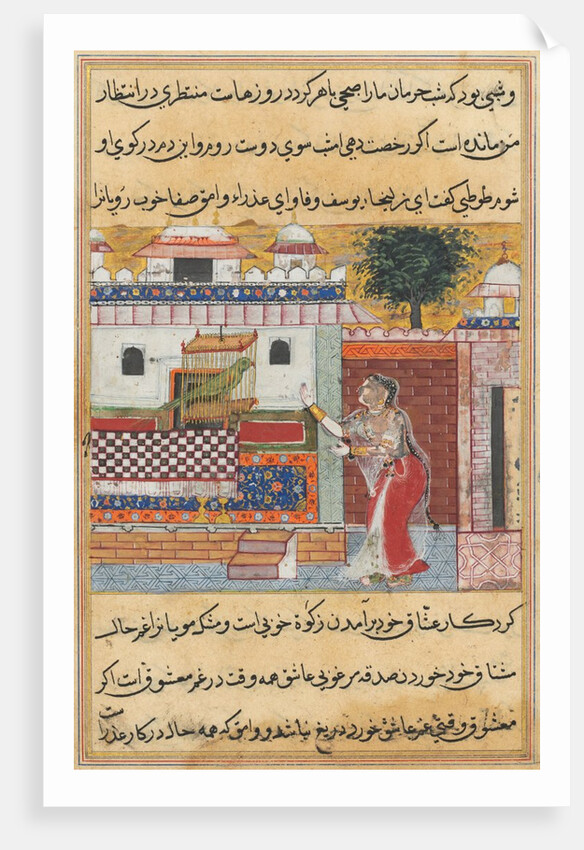 و شبی بود که شب حرمان ما را صبحی باهر کردد روزهاست منتظری در انتظار
من مانده است اکر رخصت دهی امشب سوی دوست روم و این دم در کوی او
شوم طوطی کفت ای زلیخاء یوسف وفا و ای عذراء وامق صفا خوب رویانرا
کرد کار عشاق خود برآمدن زکوة خوبی است و مشکمویانرا غم حال
مشتاق خود خوردن صدقه مرغوبی عاشق همه وقت در غم معشوق است اکر
معشوق وقتی غم عاشق خورد دریغ نباشد و وامق که همه حال در کار عذراست